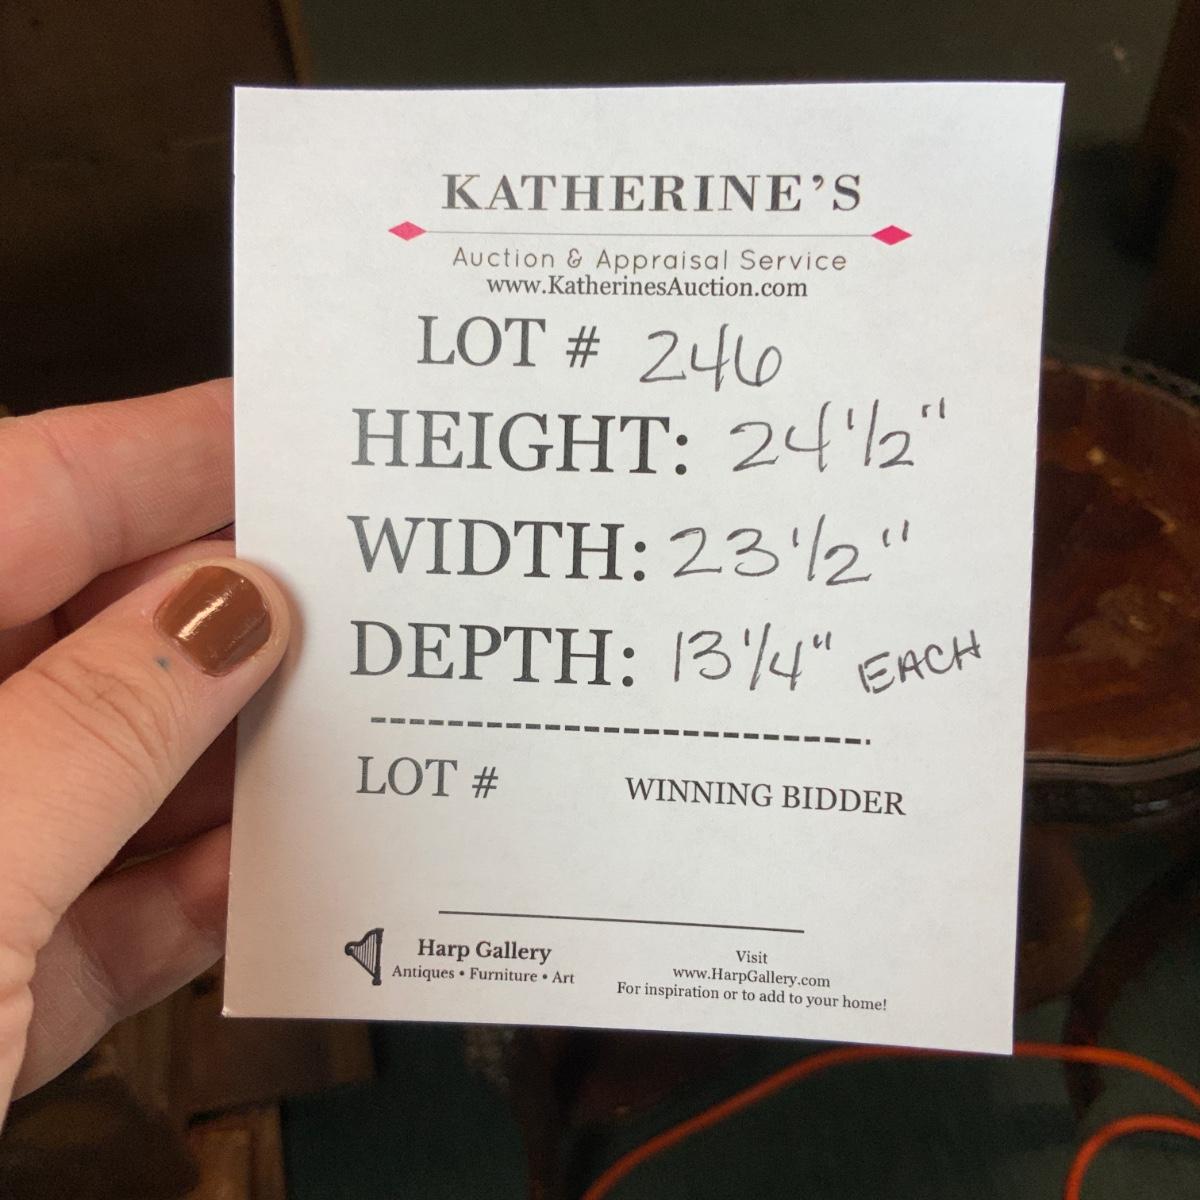 KATHERINE'S
Auction & Appraisal Service
www.KatherinesAuction.com
LOT # 246
HEIGHT: 24 1/2"
WIDTH: 23 1/2"
DEPTH: 13 1/4" EACH
LOT # WINNING BIDDER
Harp Gallery
Antiques • Furniture • Art
Visit
www.HarpGallery.com
For inspiration or to add to your home!